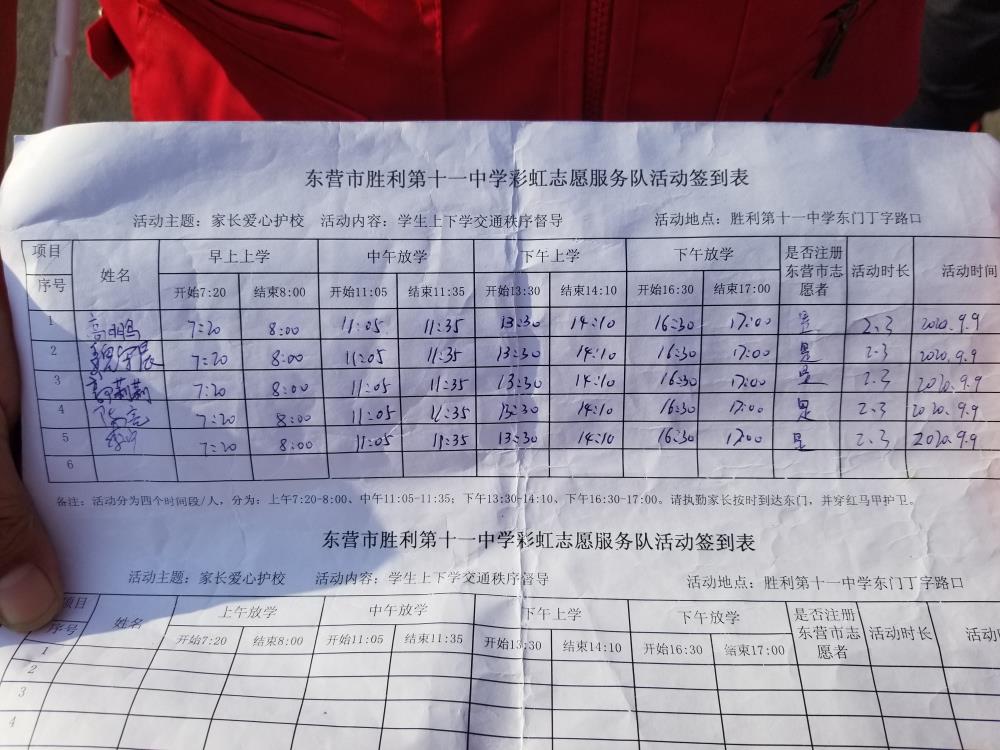 东营市胜利第十一中学彩虹志愿服务队活动签到表
活动主题：家长爱心护校 活动内容：学生上下学交通秩序督导 活动地点：胜利第十一中学东门丁字路口
项目 序号 姓名 早上上学 中午放学 下午上学 下午放学 是否注册东营市志愿者 活动时长 活动时间
开始7:20 结束8:00 开始11:05 结束11:35 开始13:30 结束14:10 开始16:30 结束17:00
1 高鹏 7:20 8:00 11:05 11:35 13:30 14:10 16:30 17:00 是 2.3 2020.9.9
2 7:20 8:00 11:05 11:35 13:30 14:10 16:30 17:00 是 2.3 2020.9.9
3 莉莉 7:20 8:00 11:05 11:35 13:30 14:10 16:30 17:00 是 2.3 2020.9.9
4 7:20 8:00 11:05 11:35 13:30 14:10 16:30 17:00 是 2.3 2020.9.9
5 7:20 8:00 11:05 11:35 13:30 14:10 16:30 17:00 是 2.3 2020.9.9
6
备注：活动分为四个时间段/人，分为：上午7:20-8:00、中午11:05-11:35；下午13:30-14:10、下午16:30-17:00。请执勤家长按时到达东门，并穿红马甲护卫。
东营市胜利第十一中学彩虹志愿服务队活动签到表
活动主题：家长爱心护校 活动内容：学生上下学交通秩序督导 活动地点：胜利第十一中学东门丁字路口
项目 序号 姓名 上午放学 中午放学 下午上学 下午放学 是否注册东营市志愿者 活动时长 活动
开始7:20 结束8:00 开始11:05 结束11:35 开始13:30 结束14:10 开始16:30 结束17:00
1
2
3
4